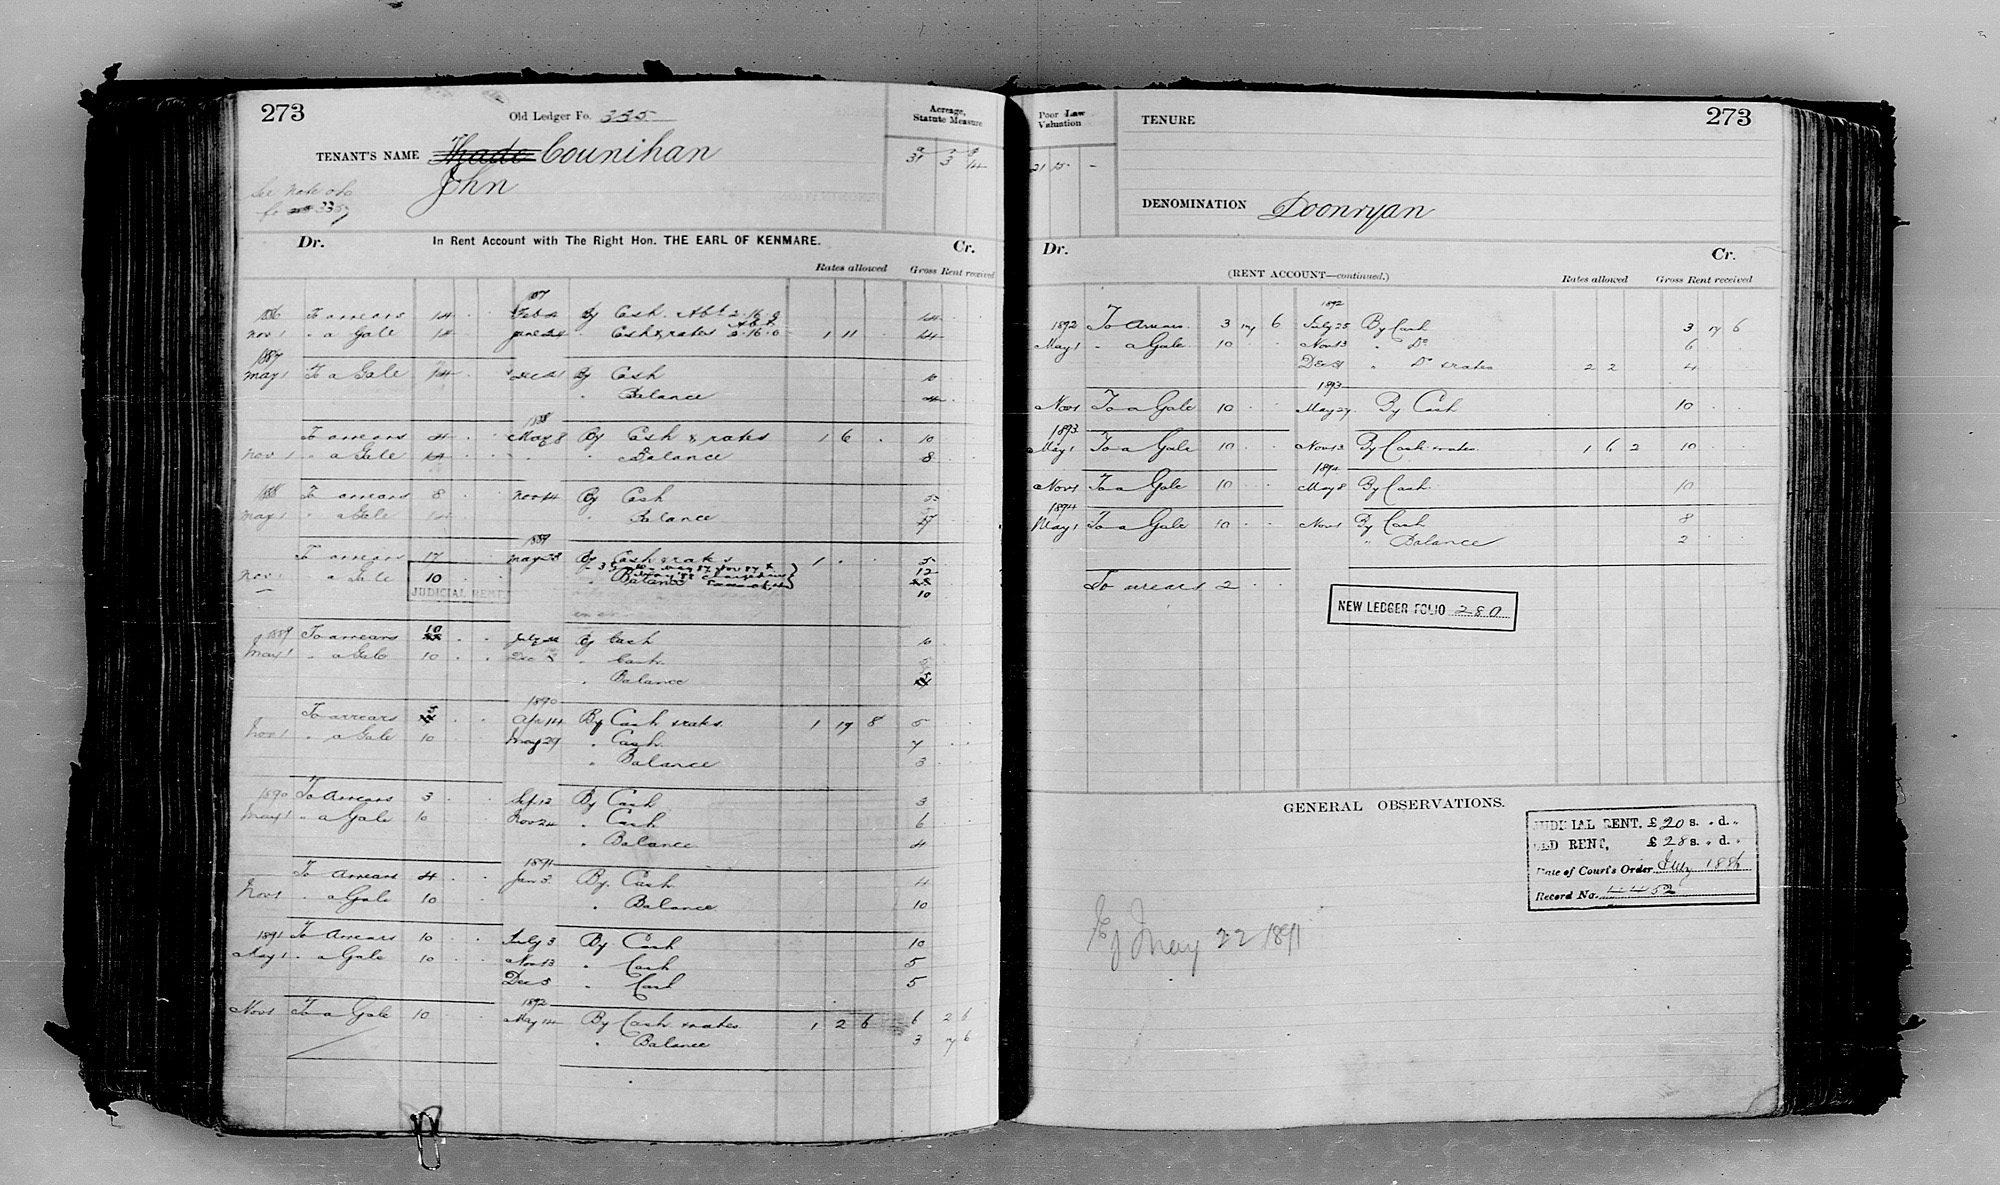 273
Old Ledger Fo. 335
Acreage, Statute Measure
TENANT'S NAME Thade Counihan
John
a r p
31 3 14
See note at
fo 335
Dr. In Rent Account with The Right Hon. THE EARL OF KENMARE. Cr.
Rates allowed Gross Rent received
1886 To arrears 14 Feb 4 By Cash. Abt. 2.16.0 14
Nov 1 " a Gale 14 June 24 Cash & rates Abt 2.16.0 1 11 14
1887
May 1 To a Gale 14 Dec 21 By Cash 10
" Balance 4
1888
To arrears 4 May 8 By Cash & rates 1 6 10
Nov 1 " a Gale 14 " Balance 8
1888 To arrears 8 Nov 14 By Cash 5
May 1 " a Gale 14 Balance 17
1889
To arrears 17 May 28 By Cash & rates 1 5
12
Nov 1 " a Gale 10 " Balance
10
JUDICIAL RENT
1889 To arrears 10 July By Cash 10
May 1 " a Gale 10 Dec " Cash 5
" Balance 5
1890
To arrears 5 Apr 14 By Cash & rates 1 19 8 5
Nov 1 " a Gale 10 May 29 " Cash 7
" Balance 3
1890 To Arrears 3 Sep 12 By Cash 3
May 1 " a Gale 10 Nov 24 " Cash 6
" Balance 4
1891
To Arrears 4 Jan 3 By Cash 4
Nov 1 " a Gale 10 " Balance 10
1891 To Arrears 10 July 3 By Cash 10
May 1 " a Gale 10 Nov 13 " Cash 5
Dec 5 " Cash 5
1892
Nov 1 To a Gale 10 May 14 By Cash & rates 1 2 6 6 2 6
" Balance 3 17 6
Poor Law Valuation
TENURE
273
21 15 -
DENOMINATION Doonryan
Dr. Cr.
(RENT ACCOUNT—continued.)
Rates allowed Gross Rent received
1892
1892 To Arrears 3 17 6 July 25 By Cash 3 17 6
May 1 " a Gale 10 Nov 13 " Do 6
Dec 31 " Do & rates 2 2 4
1893
Nov 1 To a Gale 10 May 27 By Cash 10
1893
May 1 To a Gale 10 Nov 13 By Cash & rates 1 6 2 10
1894
Nov 1 To a Gale 10 May 8 By Cash 10
1894
May 1 To a Gale 10 Nov 1 By Cash 8
" Balance 2
To arrears 2
NEW LEDGER FOLIO 280
GENERAL OBSERVATIONS.
JUDICIAL RENT. £20 s. " d. "
OLD RENT, £28 s. " d. "
Date of Court's Order July 1886
Record No.
May 22 1891